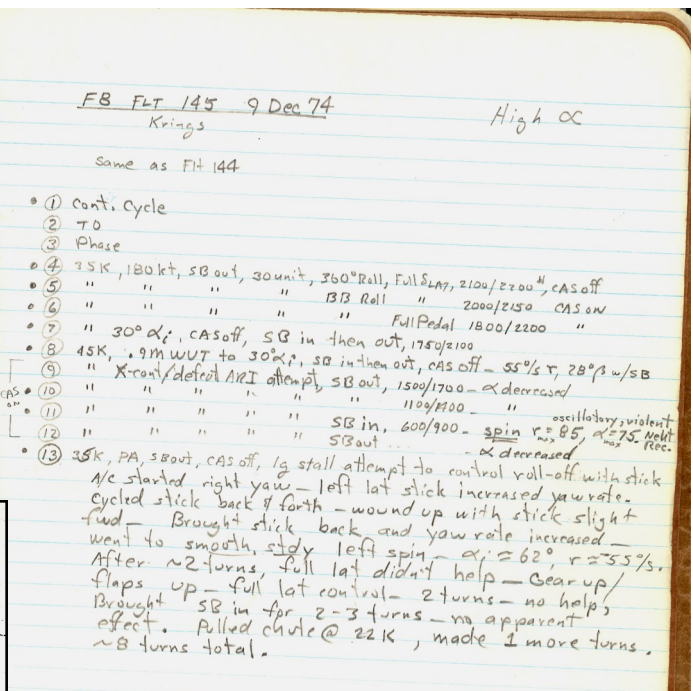 F8 FLT 145 9 Dec 74
High α
Krings
Same as Flt 144
• ① Cont. Cycle
② TO
③ Phase
• ④ 35K, 180 kt, SB out, 30 unit, 360° Roll, Full SLAT, 2100/2200 #, CAS off
• ⑤ " " " " BB Roll " 2000/2150 CAS ON
• ⑥ " " " " Full Pedal 1800/2200 "
• ⑦ " 30° αi, CAS off, SB in then out, 1750/2100
• ⑧ 45K, .9M WUT to 30° αi, SB in then out, CAS off - 55°/s r, 28° β w/SB
⑨ " X-cont/defeat ARI attempt, SB out, 1500/1700 - α decreased
CAS ON • ⑩ " " " " " 1100/1400 - "
oscillatory, violent
• ⑪ " " " " SB in, 600/900 - spin r max = 85, α max = 75, Neut Rec.
⑫ " " " " SB out ... - α decreased
• ⑬ 35K, PA, SB out, CAS off, 1g stall attempt to control roll-off with stick
A/c started right yaw - left lat stick increased yaw rate.
Cycled stick back & forth - wound up with stick slight
fwd - Brought stick back and yaw rate increased -
went to smooth, stdy left spin - αi = 62°, r ≈ 55°/s.
After ~2 turns, full lat didn't help - Gear up/
flaps up - full lat control - 2 turns - no help,
Brought SB in for 2-3 turns - no apparent
effect. Pulled chute @ 22K, made 1 more turns.
~8 turns total.